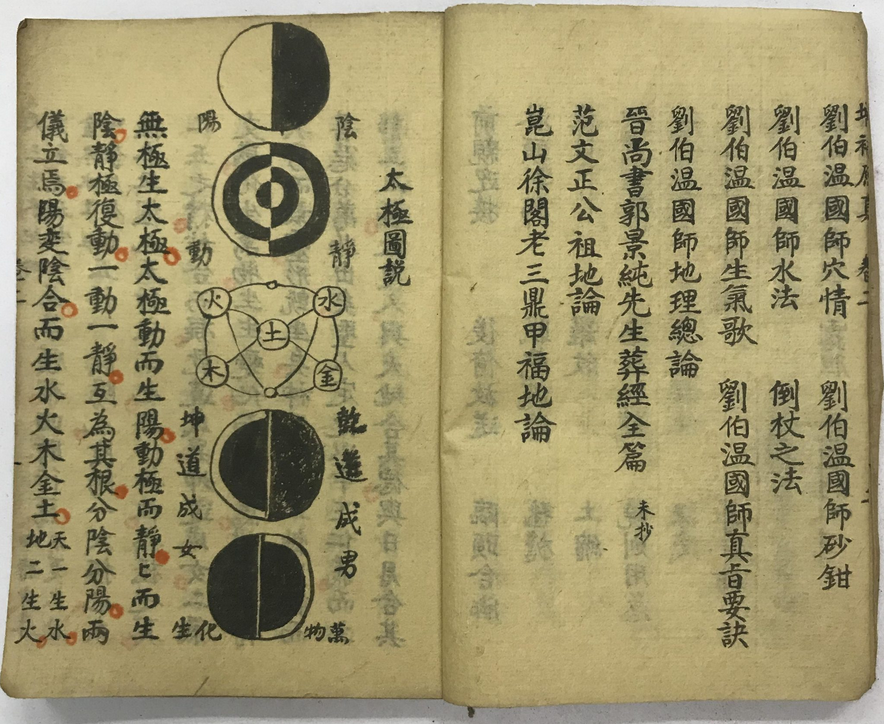 劉伯温國師穴情　劉伯温國師砂鉗
劉伯温國師水法　倒杖之法
劉伯温國師生氣歌　劉伯温國師真旨要訣
劉伯温國師地理總論
晉尚書郭景純先生葬經全篇　未抄
范文正公祖地論
崑山徐閣老三鼎甲福地論
太極圖説
陰靜
陽動
水
火
土
金
木
乾道成男
坤道成女
萬物
化生
無極生太極太極動而生陽動極而靜匕而生
陰靜極復動一動一靜互為其根分陰分陽兩
儀立焉陽変陰合而生水火木金土
天一生水
地二生火